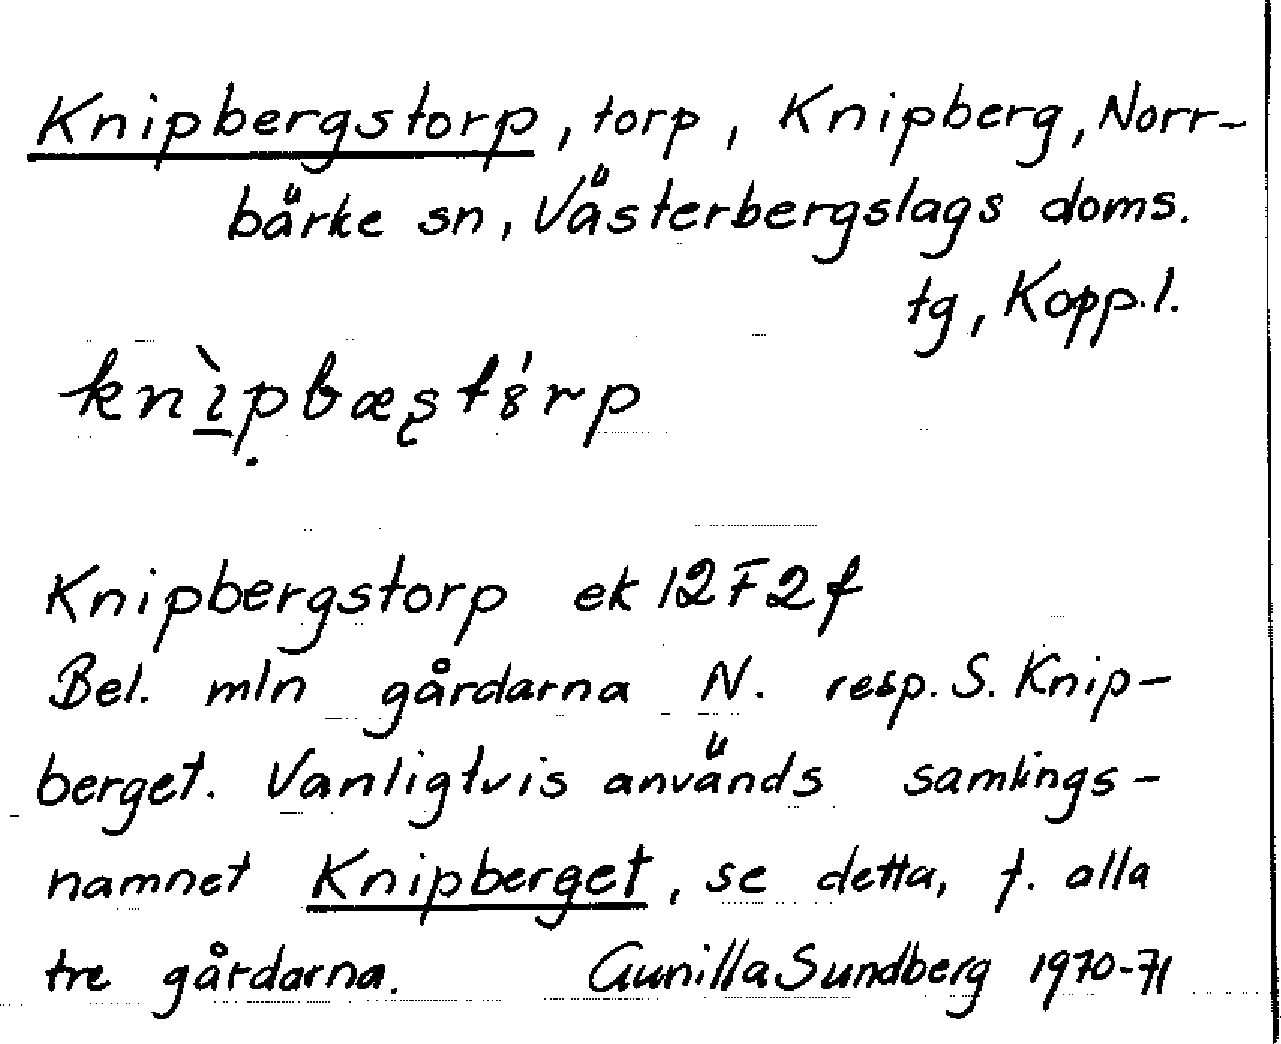 Knipbergstorp, torp, Knipberg, Norr-
bärke sn, Västerbergslags doms.
tg, Kopp.l.
knìpbæʂtȣ́rp
Knipbergstorp ek 12F2f
Bel. mln gårdarna N. resp. S. Knip-
berget. Vanligtvis används samlings-
namnet Knipberget, se detta, f. alla
tre gårdarna. Gunilla Sundberg 1970-71